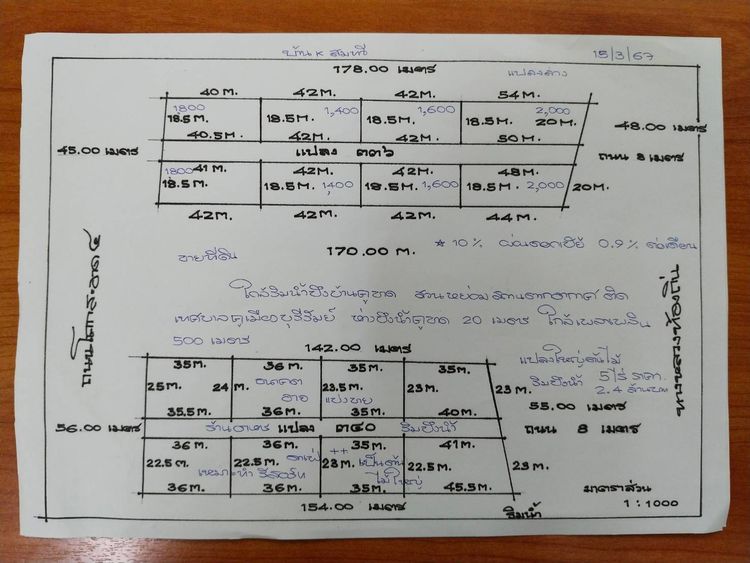 บ้าน K สมทวี 15/3/67
178.00 เมตร แปลงล่าง
40 ม. 42 ม. 42 ม. 54 ม.
1800 1,400 1,600 2,000
18.5 ม. 18.5 ม. 18.5 ม. 18.5 ม. 20 ม. 48.00 เมตร
40.5 ม. 42 ม. 42 ม. 50 ม.
45.00 เมตร แปลง ๓๓๖ ถนน 8 เมตร
1800 41 ม. 42 ม. 42 ม. 48 ม.
18.5 ม. 18.5 ม. 1400 18.5 ม. 1,600 18.5 ม. 2,000 20 ม.
42 ม. 42 ม. 42 ม. 44 ม.
ขายที่ดิน 170.00 ม. * 10% ผ่อนดอกเบี้ย 0.9% ต่อเดือน
ใกล้ริมน้ำบึงบ้านคูขาด สวนหย่อม ติด
เทศบาลคูเมืองบุรีรัมย์ ห่างบึงน้ำคูขาด 20 เมตร ใกล้เพลาเพลิน
500 เมตร 142.00 เมตร
แปลงใหญ่ต้นไม้
35 ม. 36 ม. 35 ม. 35 ม. ริมบึงน้ำ 5 ไร่ ราคา
25 ม. 24 ม. 23.5 ม. 23 ม. 23 ม. 2.4 ล้านบาท
แบ่งขาย
35.5 ม. 36 ม. 35 ม. 40 ม. 55.00 เมตร
56.00 เมตร ร้านอาหาร แปลง ๓๔๐ ริมบึงน้ำ ถนน 8 เมตร
36 ม. 36 ม. 35 ม. 41 ม.
22.5 ม. 22.5 ม. ++ 23 ม. เป็นต้น 22.5 ม. 23 ม.
เหมาะทำ รีสอร์ท ไม้ใหญ่
36 ม. 36 ม. 35 ม. 45.5 ม. มาตราส่วน
154.00 เมตร ริมน้ำ 1 : 1000